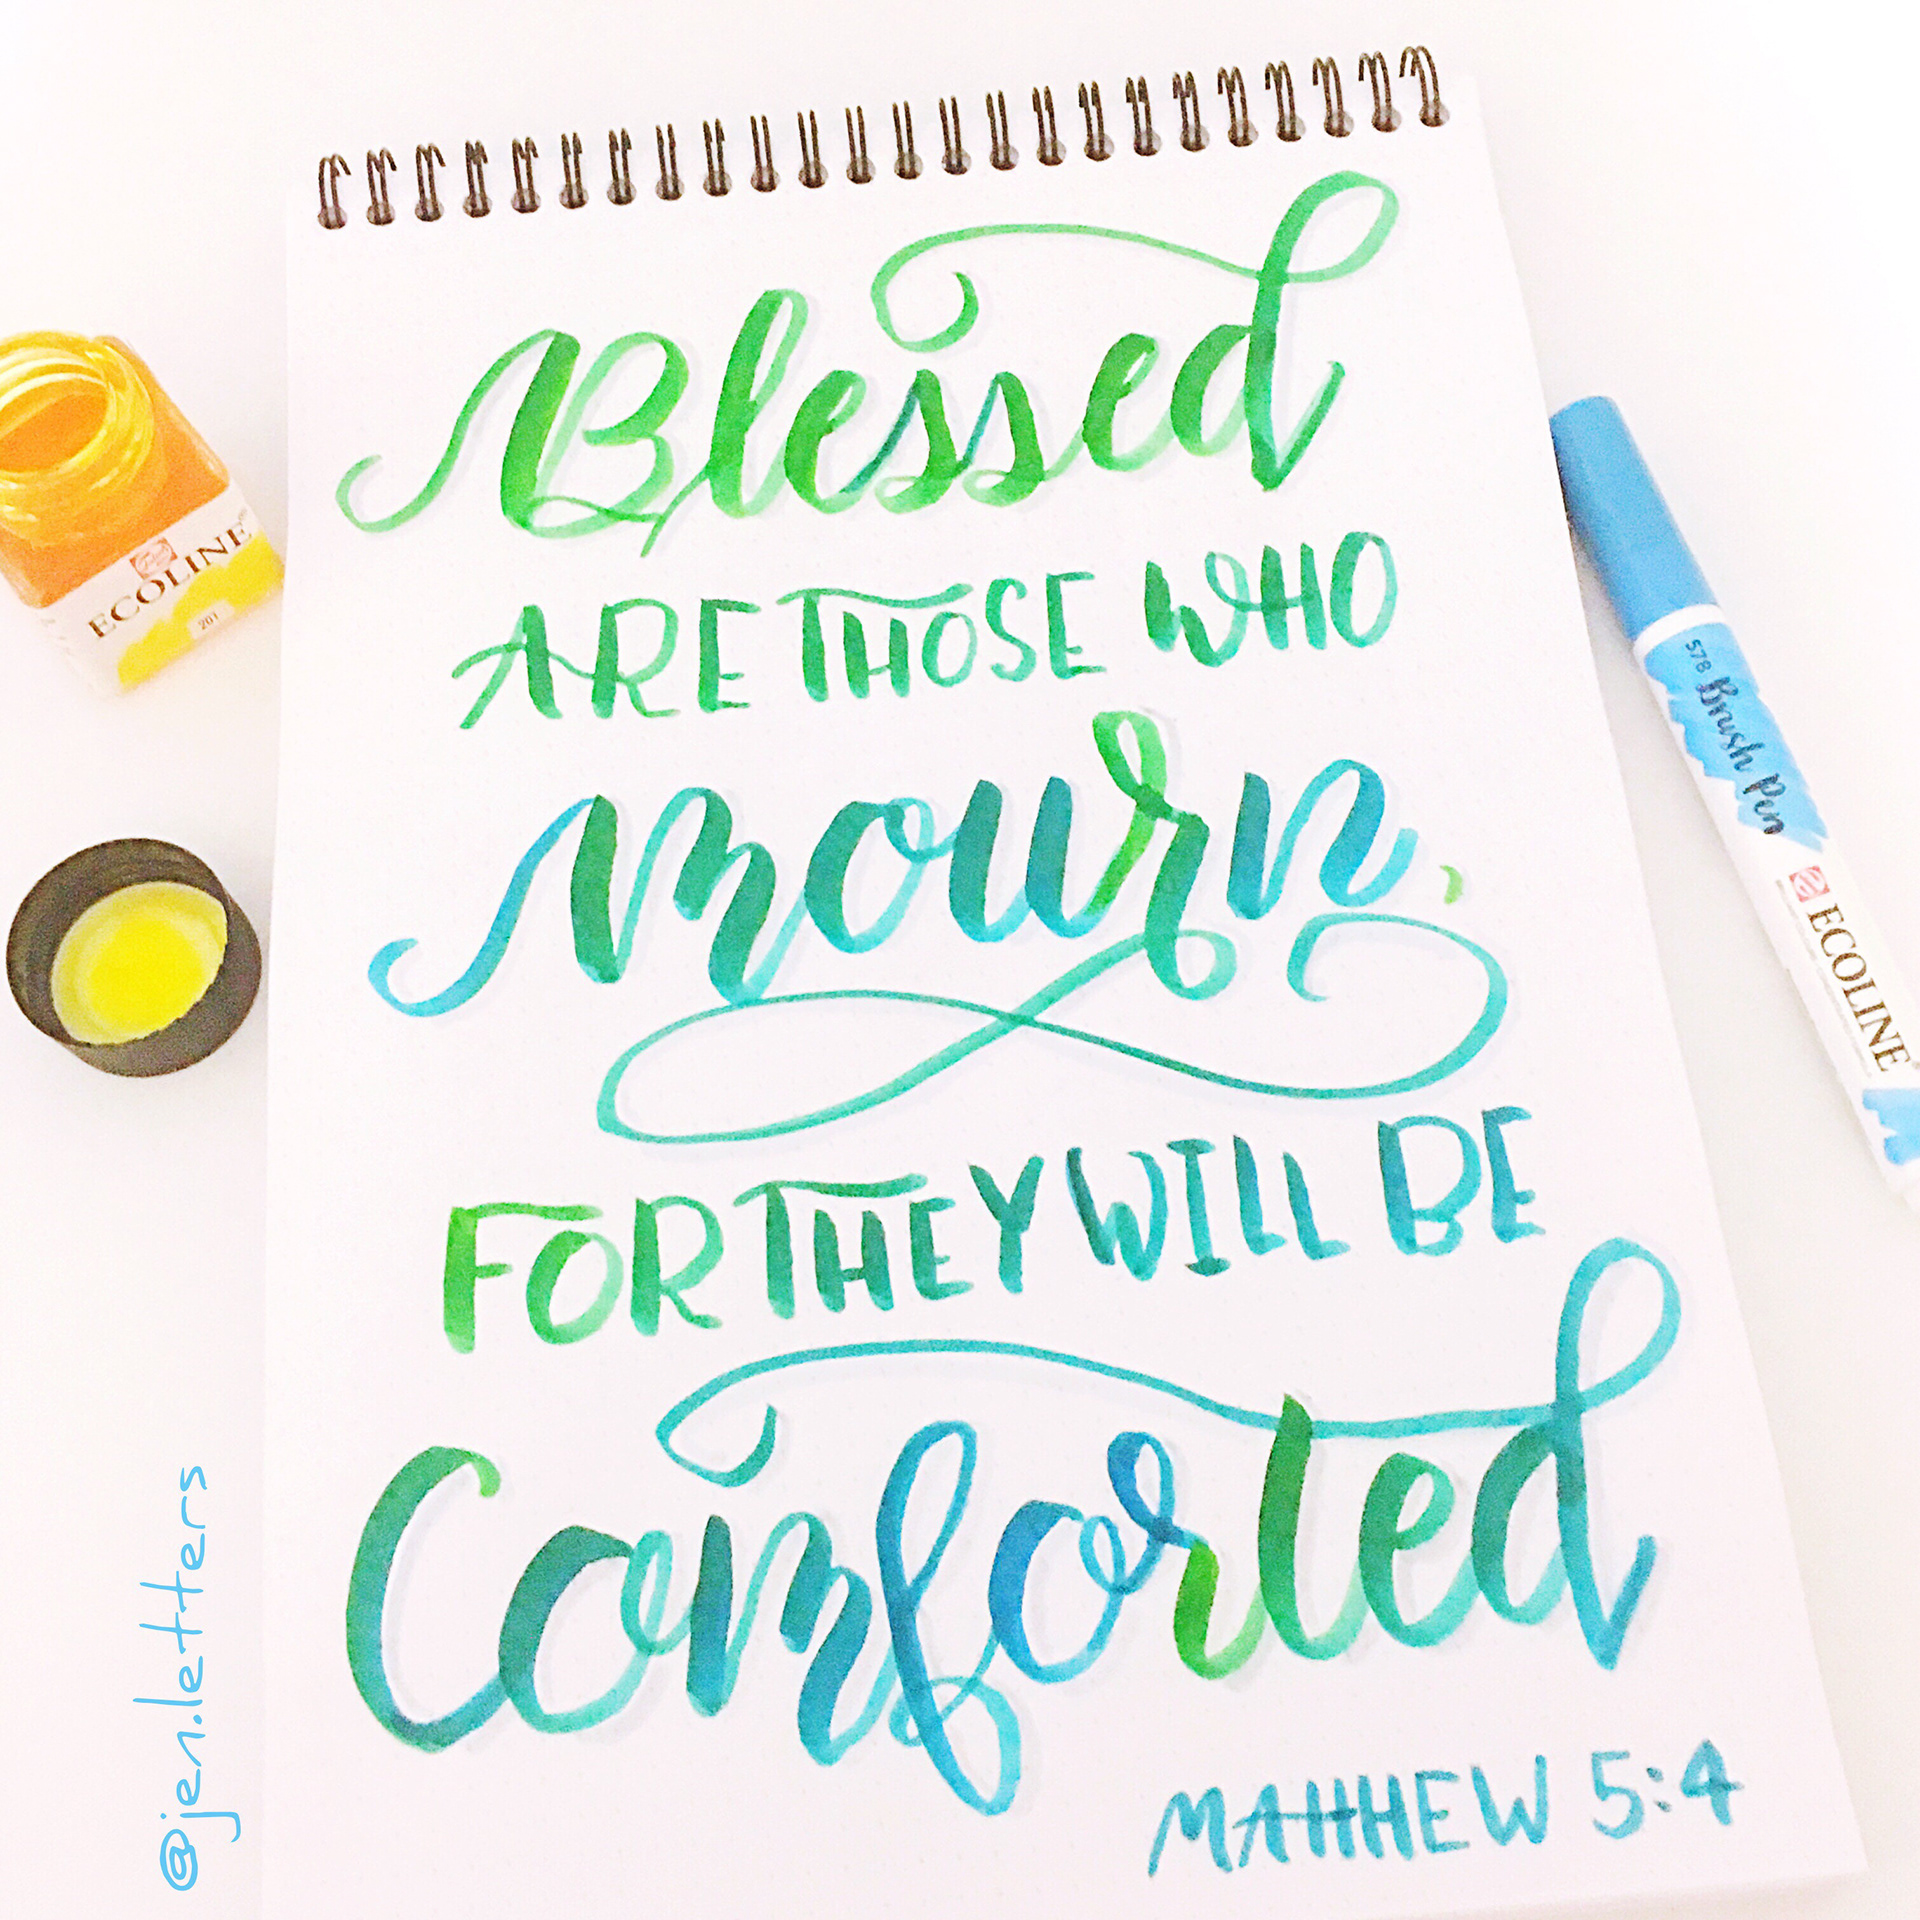 Blessed
ARE THOSE WHO
Mourn,
FOR THEY WILL BE
Comforted
MATTHEW 5:4
@jen.letters
ECOLINE
201
578 Brush Pen
ECOLINE